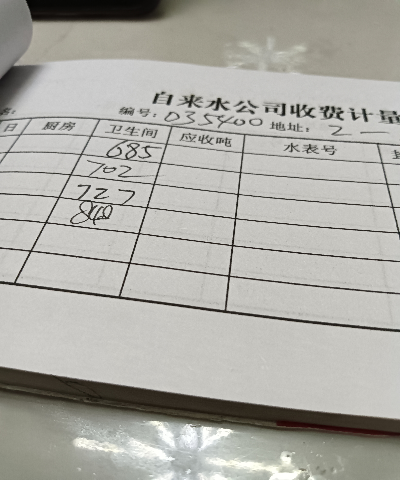 自来水公司收费计量
编号: 035400 地址: 2 一
日 厨房 卫生间 应收吨 水表号
685
702
727